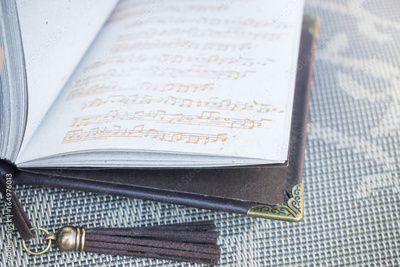 Adobe Stock | #164976013